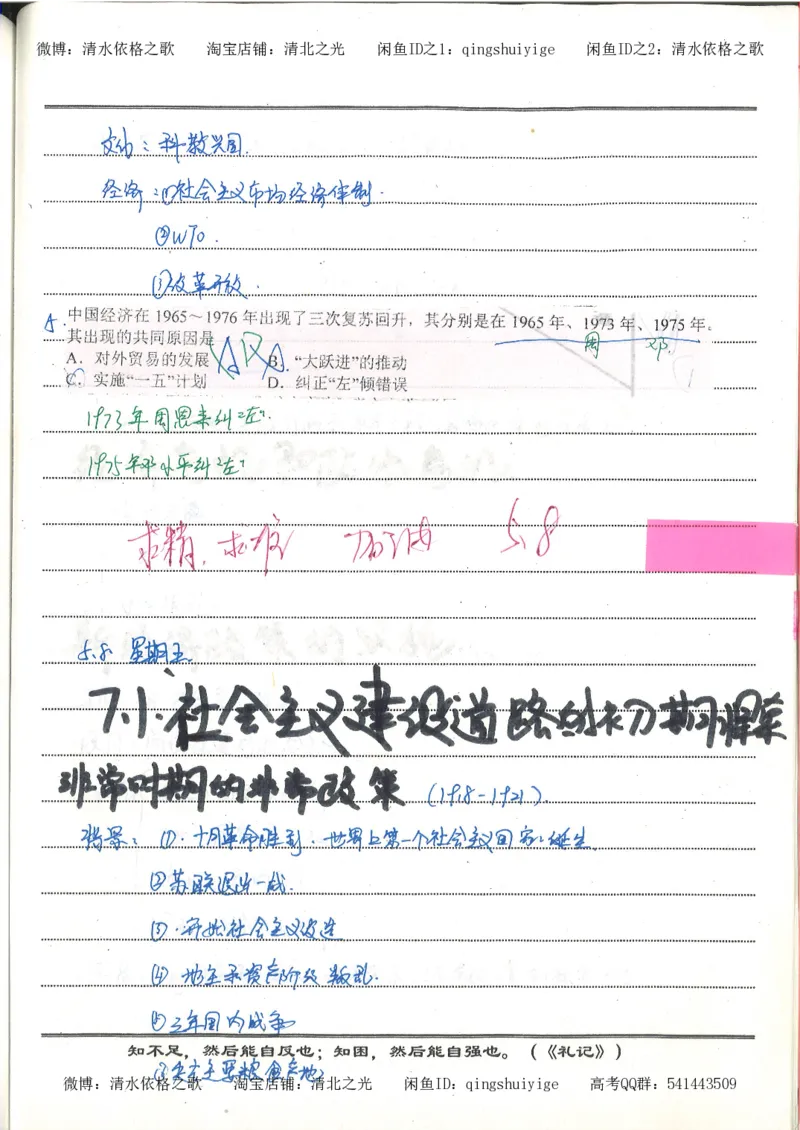 微博：清水依格之歌 淘宝店铺：清北之光 闲鱼ID之1：qingshuiyige 闲鱼ID之2：清水依格之歌
文化：科教兴国.
经济：①社会主义市场经济体制.
②WTO.
③改革开放.
5. 中国经济在 1965～1976 年出现了三次复苏回升，其分别是在 1965 年、1973 年、1975 年。
周 邓.
其出现的共同原因是
A．对外贸易的发展 B．“大跃进”的推动
C．实施“一五”计划 D．纠正“左”倾错误
1973年周恩来纠“左”.
1975年邓小平纠“左”
求精，求准 加油 5.8
5.8 星期五
7.1.社会主义建设道路的初期探索
非常时期的非常政策 (1918-1921).
背景：①.十月革命胜利.世界上第一个社会主义国家诞生.
②苏联退出一战.
③.开始社会主义改造
④ 地主和资产阶级叛乱.
⑤三年国内战争
知不足，然后能自反也；知困，然后能自强也。（《礼记》）
微博：清水依格之歌 淘宝店铺：清北之光 闲鱼ID：qingshuiyige 高考QQ群：541443509